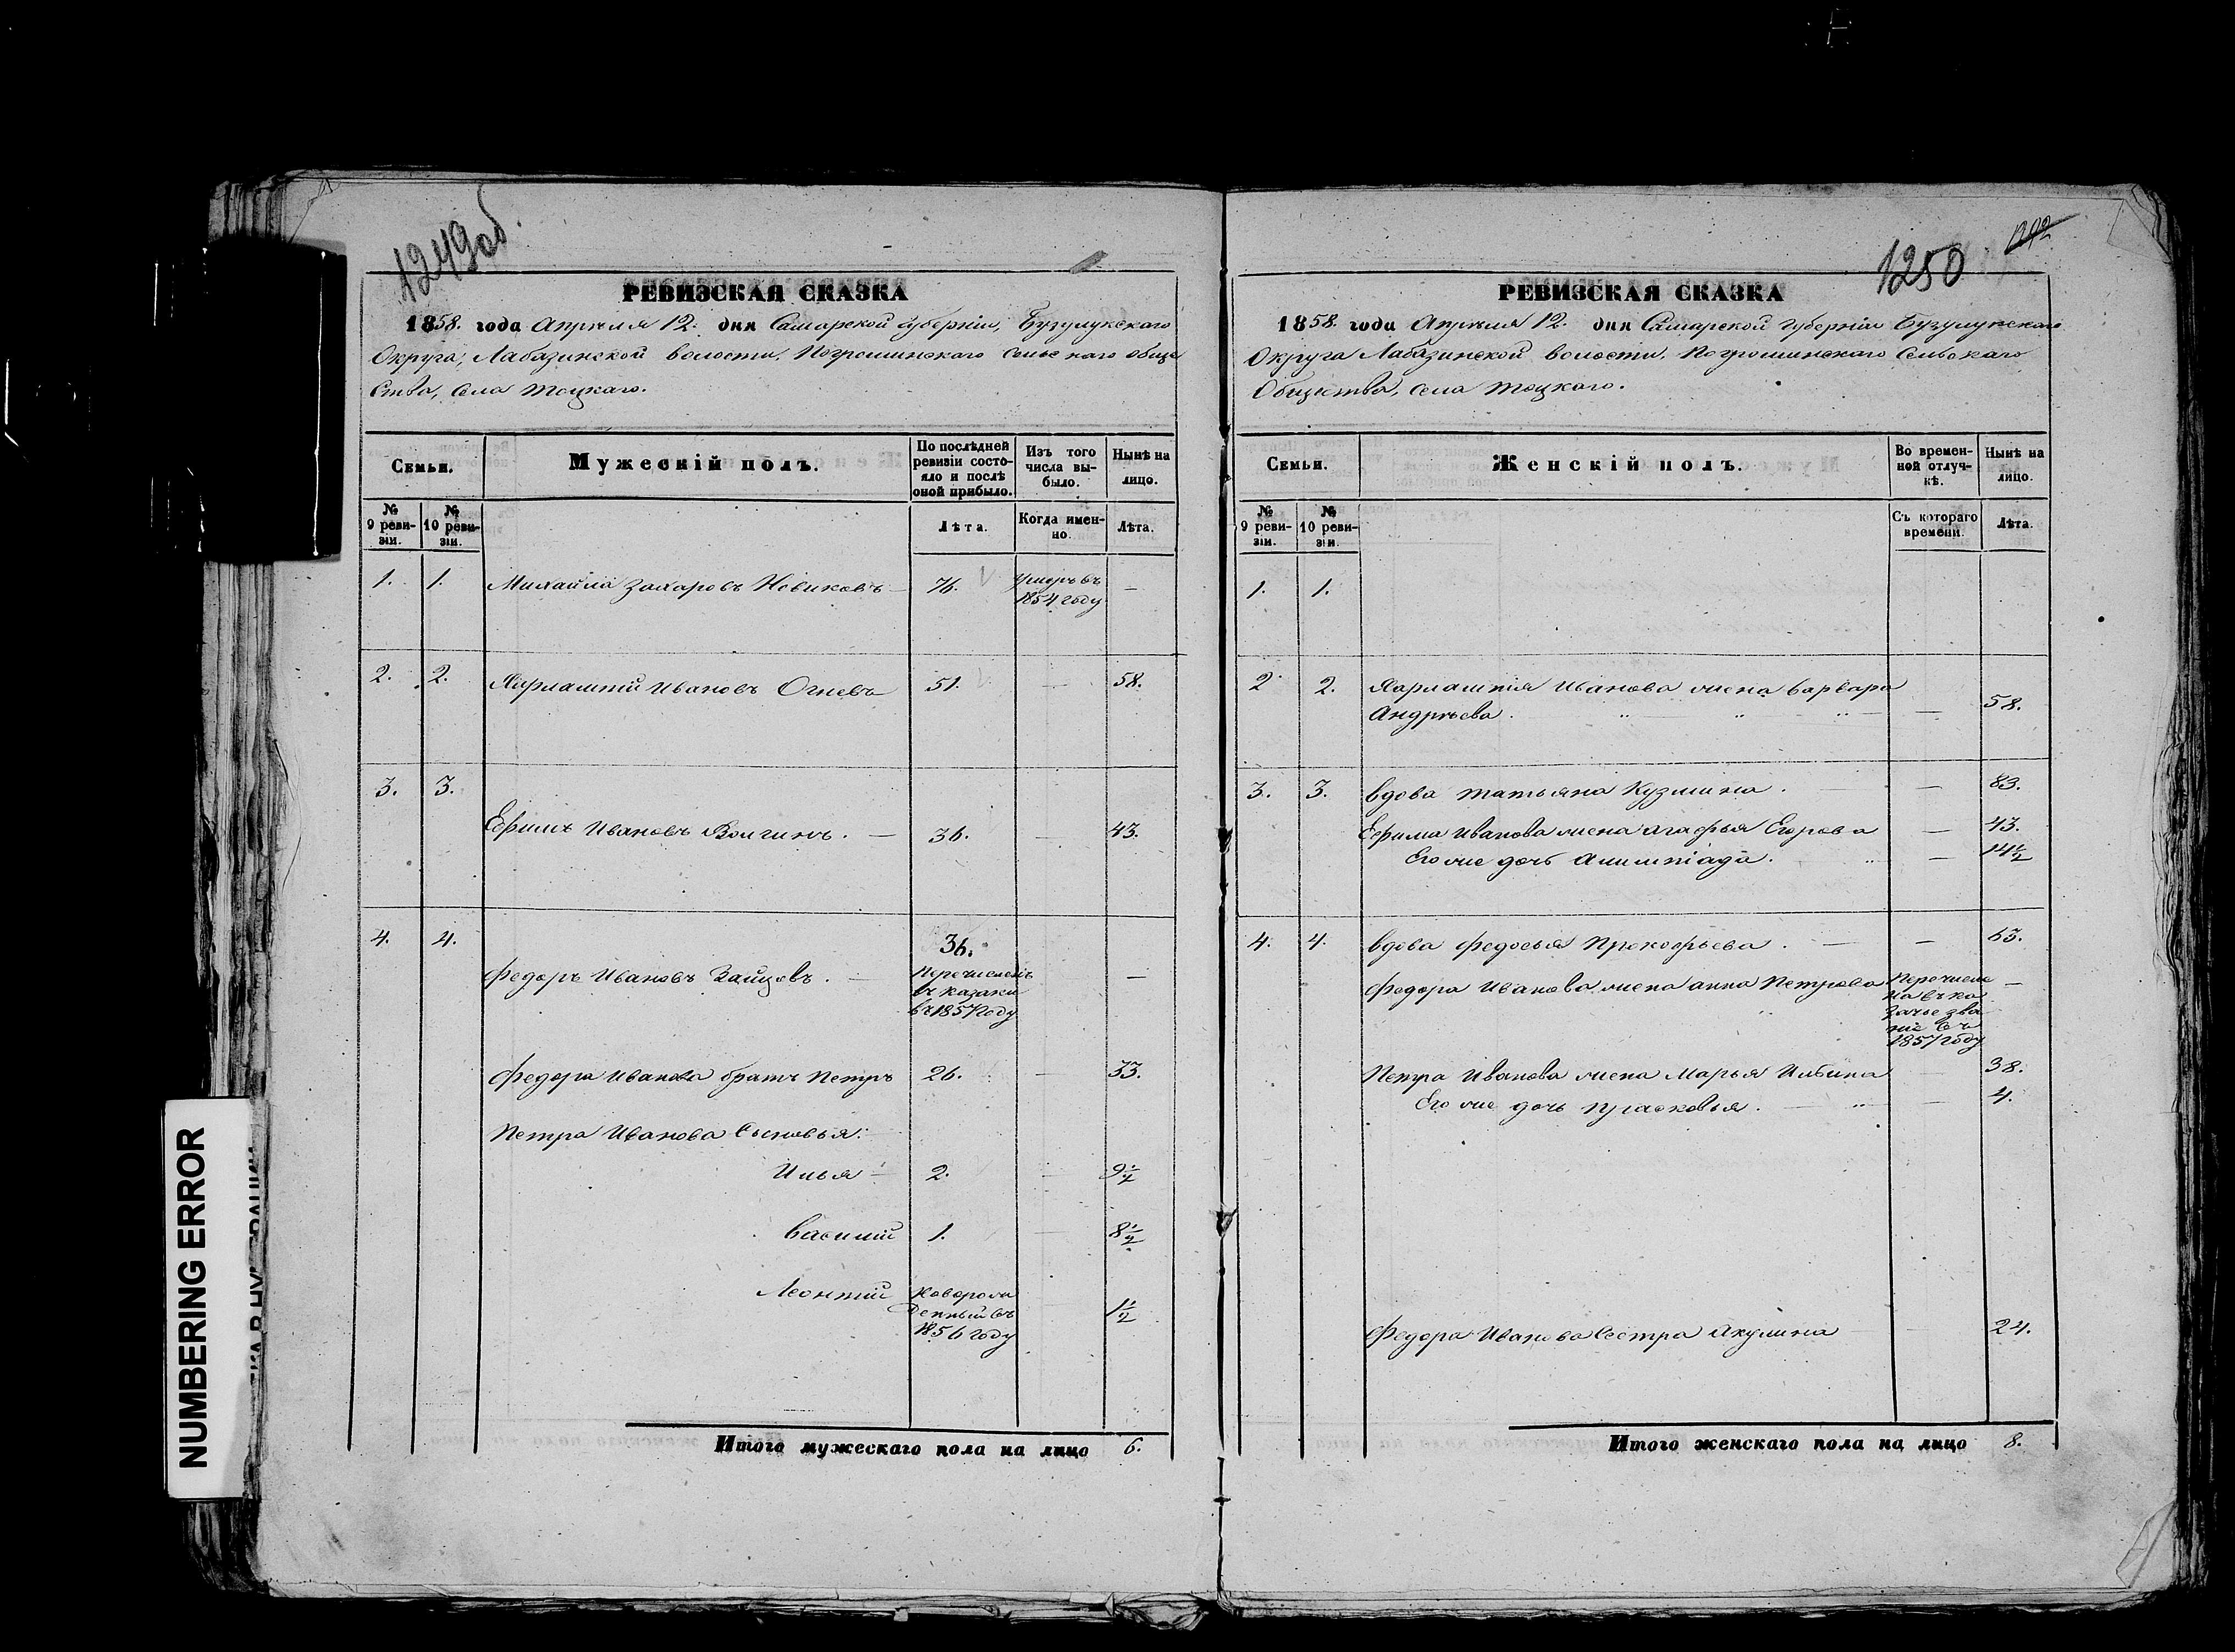 1249об.
РЕВИЗСКАЯ СКАЗКА
1858. года Апрѣля 12. дня Самарской губерніи, Бузулукскаго
Округа, Лабазинской волости, Погроминскаго сельскаго обще
ства, села Тоцкаго.
Семьи.
Мужескій полъ.
По послѣдней ревизіи состояло и послѣ оной прибыло.
Изъ того числа выбыло.
Нынѣ на лицо.
№ 9 ревизіи.
№ 10 ревизіи.
Лѣта.
Когда именно.
Лѣта.
1. 1. Михайла Захаровъ Новиковъ — 76. Умеръ въ —
1854 году
2. 2. Харлампій Ивановъ Огневъ 51. — 58.
3. 3.
Ефимъ Ивановъ Волгинъ. — 36. — 43.
4. 4. 36.
Федоръ Ивановъ Зайцовъ. — Перечисленъ —
въ казаки
въ 1857 году
Федора Иванова братъ Петръ 26. — 33.
Петра Иванова сыновья:
Илья — 2. — 9½
Василій 1. — 8½
Леонтій Новорож
денный въ 1½
1856 году
Итого мужескаго пола на лицо 6.
1250
РЕВИЗСКАЯ СКАЗКА
1858. года Апрѣля 12. дня Самарской губерніи Бузулукскаго
Округа Лабазинской волости, Погроминскаго сельскаго
Общества, села Тоцкаго.
Семьи.
Женскій полъ.
Во временной отлучкѣ.
Нынѣ на лицо.
№ 9 ревизіи.
№ 10 ревизіи.
Съ котораго времени.
Лѣта.
1. 1.
2. 2. Харлампія Иванова жена Варвара
Андрѣева. — 58.
3. 3. Вдова Татьяна Кузмина. — 83.
Ефима Иванова жена Агафья Егорова — 43.
Его же дочь Алимпіада. — 14½
4. 4. Вдова Федосья Прокофьева. — — 63.
Федора Иванова жена Анна Петрова Перечисле —
на въ ка
зачье зва
ніе въ
1857 году
Петра Иванова жена Марья Ильина 38.
Его же дочь Прасковья. — — 4.
Федора Иванова сестра Акулина 24.
Итого женскаго пола на лицо 8.
NUMBERING ERROR